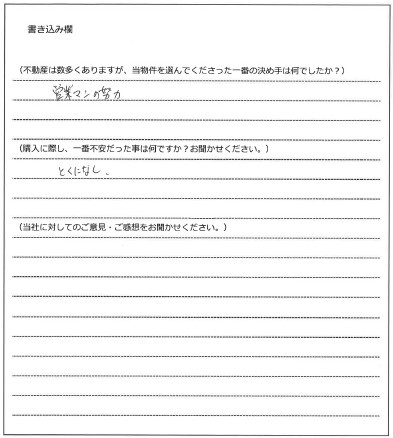 書き込み欄
（不動産は数多くありますが、当物件を選んでくださった一番の決め手は何でしたか？）
営業マンの努力
（購入に際し、一番不安だった事は何ですか？お聞かせください。）
とくになし.
（当社に対してのご意見・ご感想をお聞かせください。）